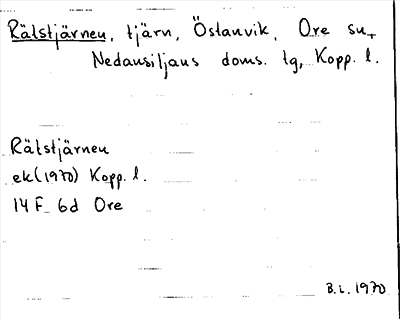 Rälstjärnen, tjärn, Östanvik, Ore sn,
Nedansiljans doms. tg, Kopp. l.
Rälstjärnen
ek (1970) Kopp. l.
14 F 6d Ore
B.L. 1970